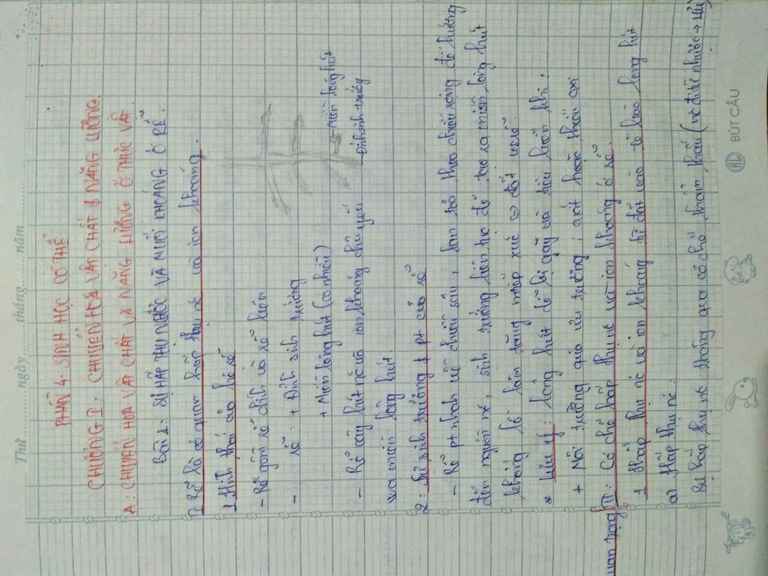 Thứ ngày tháng năm
PHẦN 4: SINH HỌC CƠ THỂ
CHƯƠNG I: CHUYỂN HÓA VẬT CHẤT & NĂNG LƯỢNG.
A: CHUYỂN HÓA VẬT CHẤT VÀ NĂNG LƯỢNG Ở THỰC VẬT
Bài 1: SỰ HẤP THỤ NƯỚC VÀ MUỐI KHOÁNG Ở RỄ.
I: Rễ là cơ quan hấp thụ nc và ion khoáng.
1 Hình thái của hệ rễ
- Rễ gồm rễ chính và rễ bên
- rễ: + Đỉnh sinh trưởng
+ Miền lông hút (có nhiều)
miền lông hút
Đỉnh sinh trưởng
- Rễ cây hút nc và ion khoáng chủ yếu
qua miền lông hút
2: Sự sinh trưởng & pt của rễ
- Rễ pt nhanh về chiều sâu, lan tỏa theo chiều rộng để hướng
đến nguồn nc, sinh trưởng liên tục để tạo ra miền lông hút
khổng lồ làm tăng tiếp xúc đất
* Lưu ý: Lông hút dễ bị gãy và tiêu biến khi:
+ Môi trường quá ưu trương, axit hoặc thiếu oxi
II: Cơ chế hấp thụ nc và ion khoáng ở rễ.
1 Hấp thụ nc và ion khoáng từ đất vào tế bào lông hút
a) Hấp thụ nc
Sự hấp thụ nc thông qua cơ chế thẩm thấu (nc đi từ nhiều →
BÚT CẦU